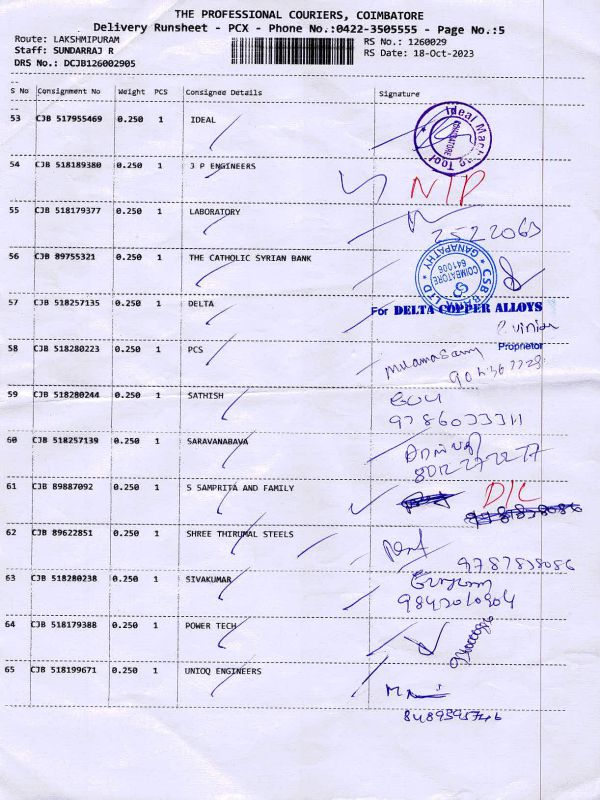 THE PROFESSIONAL COURIERS, COIMBATORE
Delivery Runsheet - PCX - Phone No.:0422-3505555 - Page No.:5
Route: LAKSHMIPURAM RS No.: 1260029
Staff: SUNDARRAJ R RS Date: 18-Oct-2023
DRS No.: DCJB126002905
S No Consignment No Weight PCS Consignee Details Signature
53 CJB 517955469 0.250 1 IDEAL
Ideal Marking Tool COIMBATORE
54 CJB 518189380 0.250 1 J P ENGINEERS
N/P
55 CJB 518179377 0.250 1 LABORATORY
2522063
56 CJB 89755321 0.250 1 THE CATHOLIC SYRIAN BANK
CSB BANK LTD * GANAPATHY * COIMBATORE 641006
57 CJB 518257135 0.250 1 DELTA
For DELTA COPPER ALLOYS
Proprietor
58 CJB 518280223 0.250 1 PCS
59 CJB 518280244 0.250 1 SATHISH
9786033311
60 CJB 518257139 0.250 1 SARAVANABAVA
61 CJB 89887092 0.250 1 S SAMPRITA AND FAMILY
D/L
62 CJB 89622851 0.250 1 SHREE THIRUMAL STEELS
9787838086
63 CJB 518280238 0.250 1 SIVAKUMAR
64 CJB 518179388 0.250 1 POWER TECH
65 CJB 518199671 0.250 1 UNIOQ ENGINEERS
8489595746